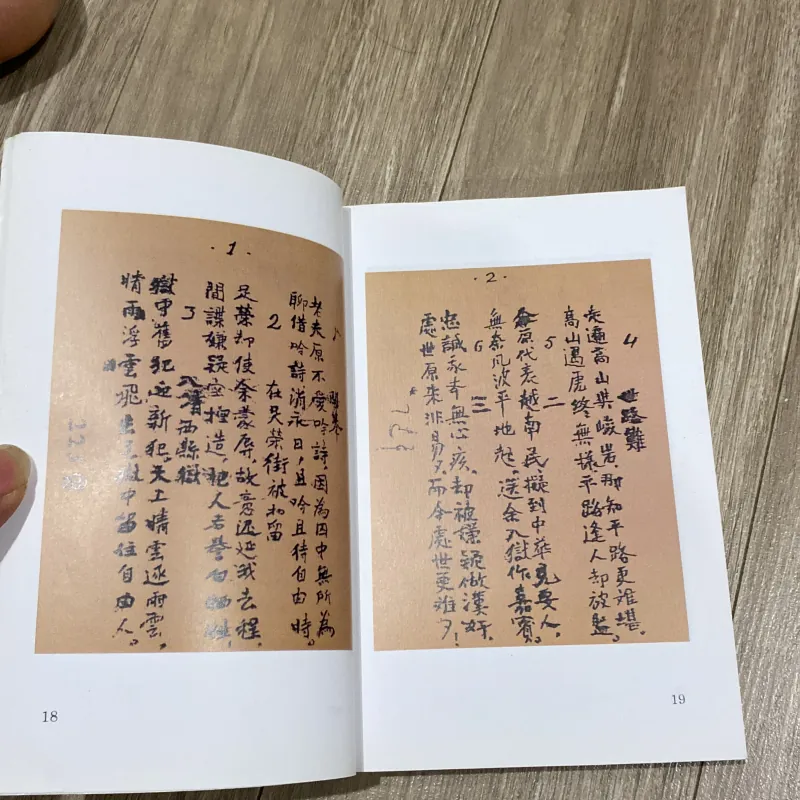 ·1·
1 開卷
老夫原不愛吟詩，因為囚中無所為
聊借吟詩消永日，且吟且待自由時。
2 在足榮街被扣留
足榮却使余蒙辱，故意遲延我去程。
間諜嫌疑空捏造，把人名譽白犧牲。
3 入靖西縣獄
獄中舊犯迎新犯，天上晴雲逐雨雲。
晴雨浮雲飛去了，獄中留住自由人。
18
·2·
4 世路難
走遍高山與峻岩，那知平路更難堪。
高山遇虎終無恙，平路逢人却被監。
5 二
余原代表越南民，擬到中華見要人。
無奈風波平地起，送余入獄作嘉賓。
6 三
忠誠我本無心疚，却被嫌疑做漢奸。
處世原來非易々，而今處世更難々！
19